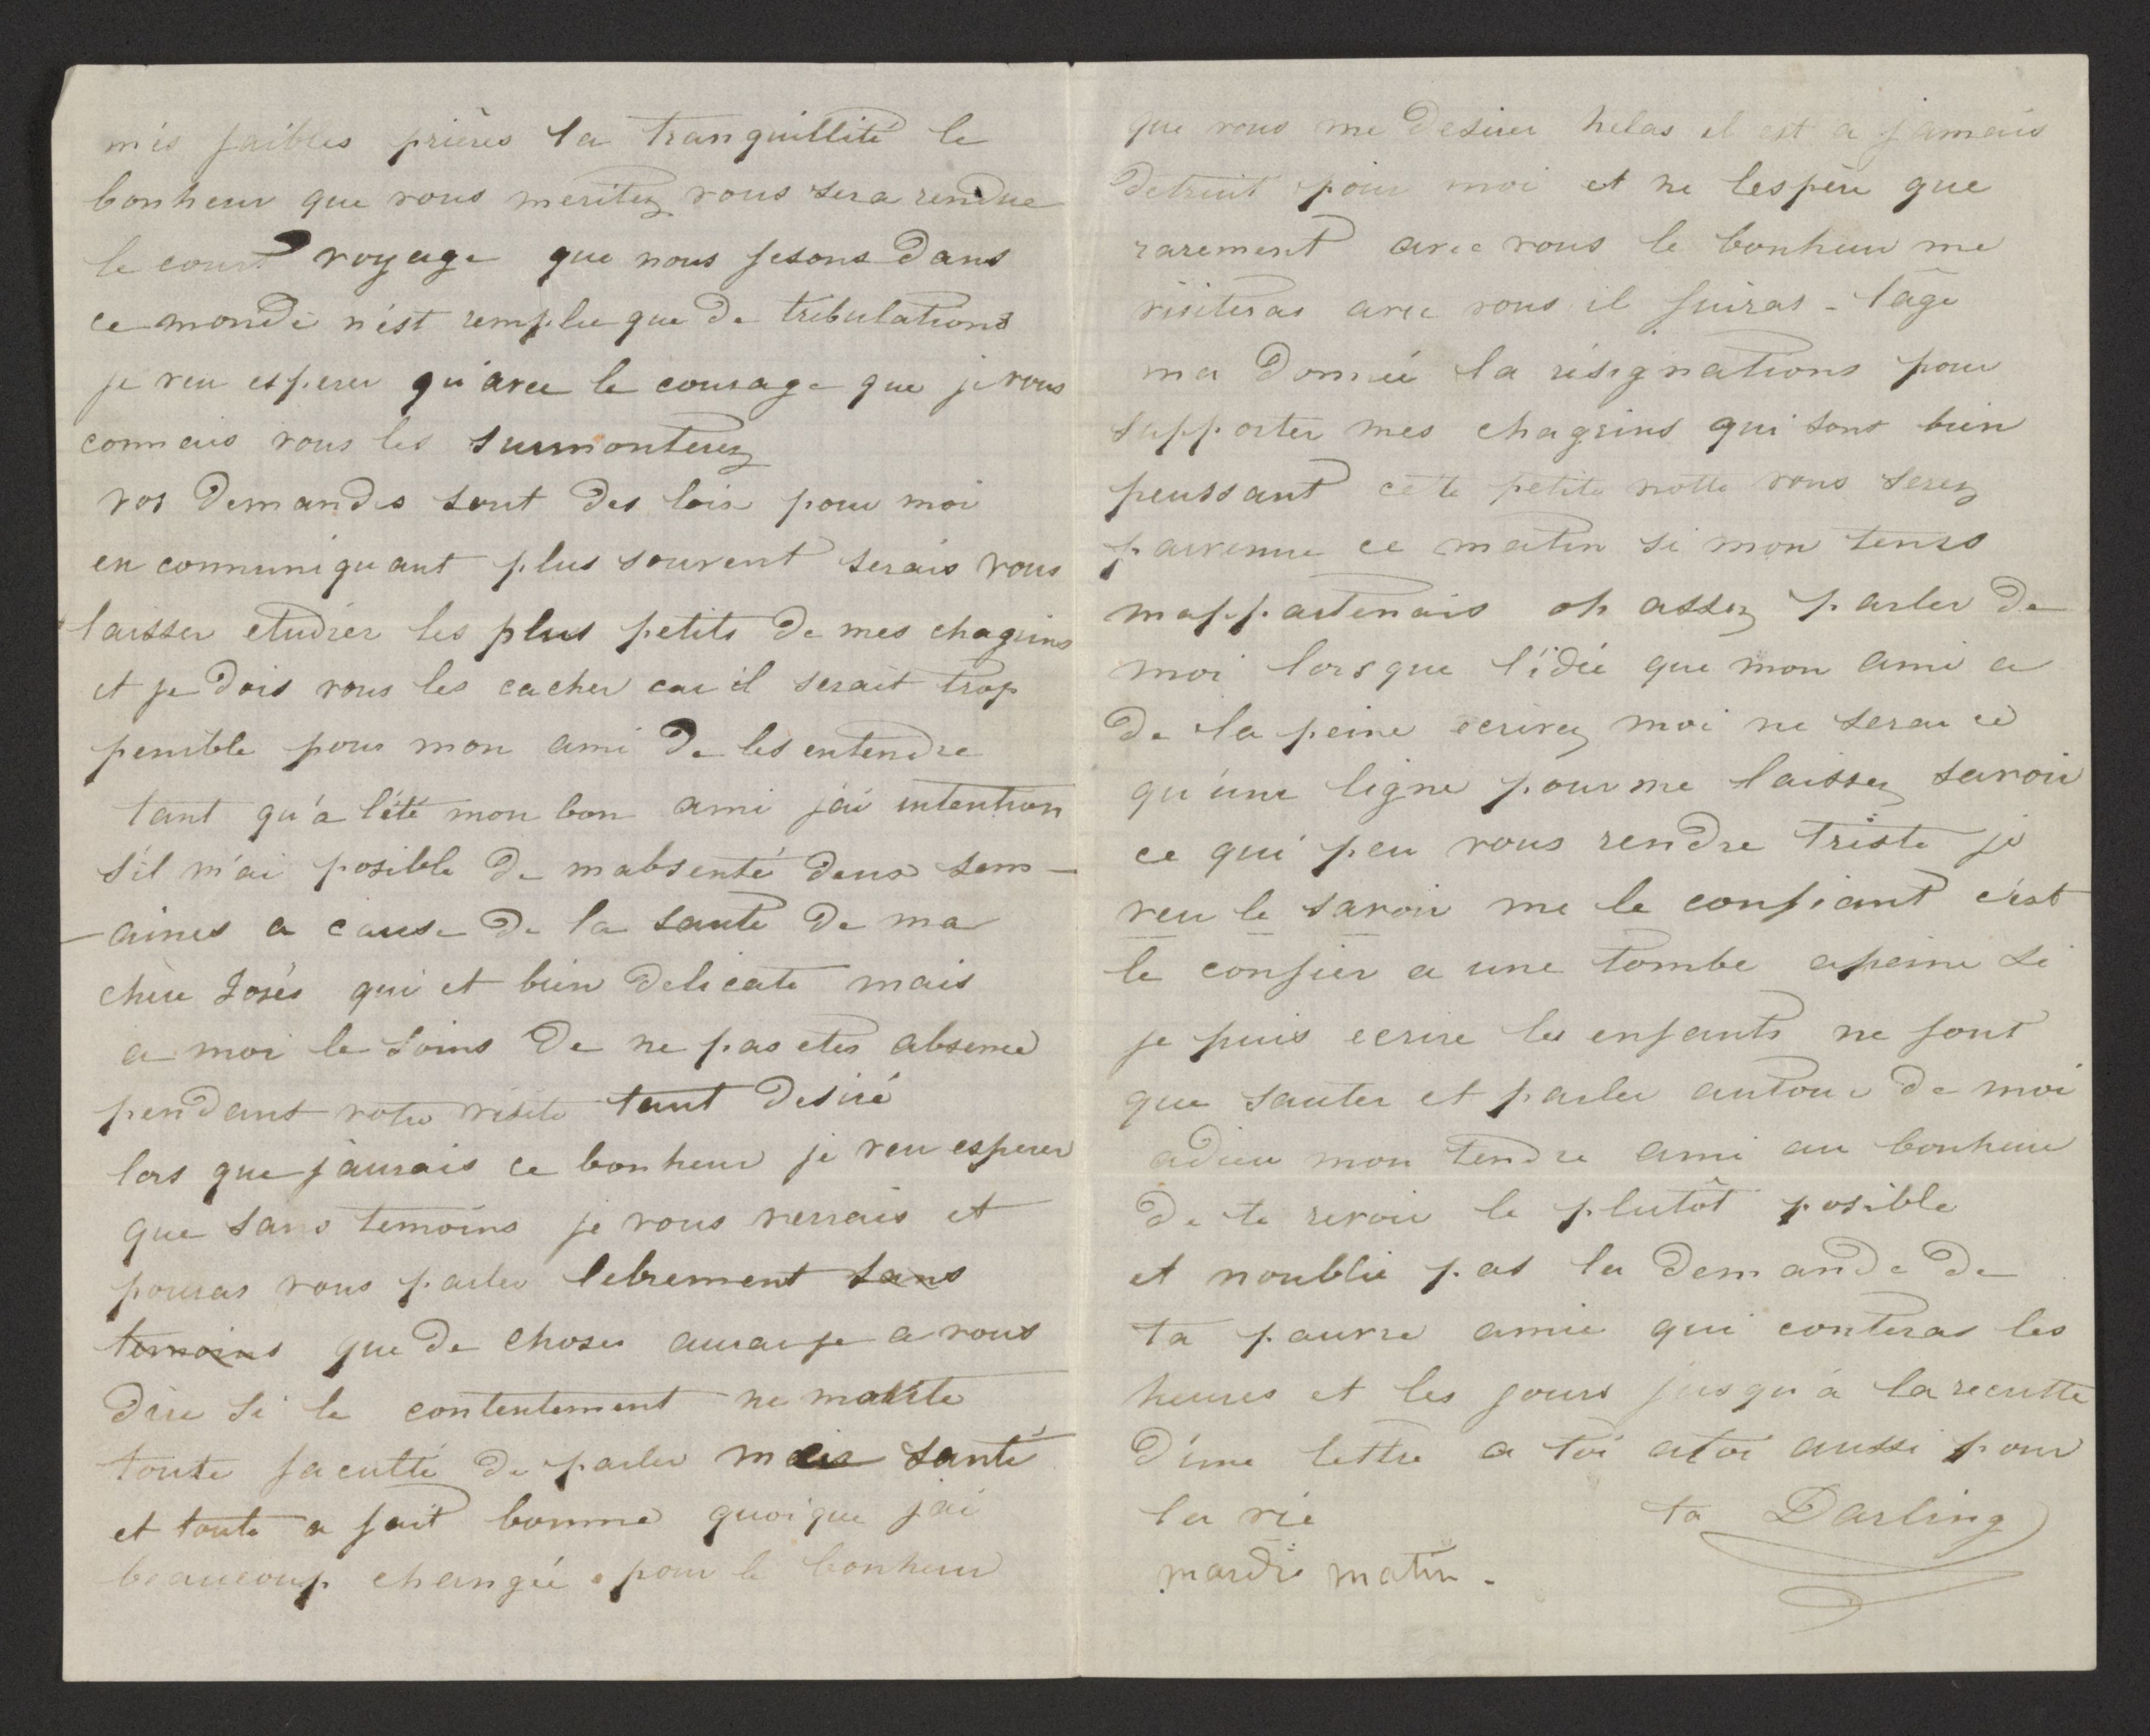 mes faibles prières la tranquillité le
bonheur que vous meritez vous sera rendue
le court voyage que nous fesons dans
ce monde n'est remplie que de tribulations
je veu esperer qu'avec le courage que je vous
connais vous les surmonterez
vos demandes sont des lois pour moi
en communiquant plus souvent serais vous
laisser etudier les plus petits de mes chagrins
et je dois vous les cacher car il serait trop
penible pour mon ami de les entendre
tant qu'a l'été mon bon ami j'ai intention
s'il m'ai posible de mabsenté deux sem-
-aines a cause de la santé de ma
chère Josés qui et bien delicate mais
a moi le soins de ne pas etre absence
pendant votre visite tant desiré
lors que j'aurais ce bonheur je veu esperer
que sans temoins je vous verrais et
pourras vous parler lebrement sans
temoins que de choses aurai je a vous
dire si le contentement ne mote
toute faculté de parler ma santé
et toute a fait bonne quoique j'ai
beaucoup changée pour le bonheur
que vous me desirer helas il est a jamais
detruit pour moi et ne lespère que
rarement avec vous le bonheur me
visiteras avec vous il fuiras - l'age
ma donnée la résignations pour
supporter mes chagrins qui sont bien
peussant cette petite notte vous serez
parvenue ce matin si mon tems
mappartenais oh assez parler de
moi lorsque l'idée que mon ami a
de la peine ecrivez moi ne serai ce
qu'une ligne pour me laissez savoir
ce qui peu vous rendre triste je
veu le savoir me le confiant c'est
le confier a une tombe apeine si
je puis ecrire les enfants ne font
que sauter et parler autour de moi
adieu mon tendre ami au bonheur
de te revoir le plutôt posible
et noublie pas la demande de
ta pauvre amie qui conteras les
heures et les jours jusqu'à la recutte
d'une lettre a toi a toi aussi pour
la vie ta Darling
mardi matin.